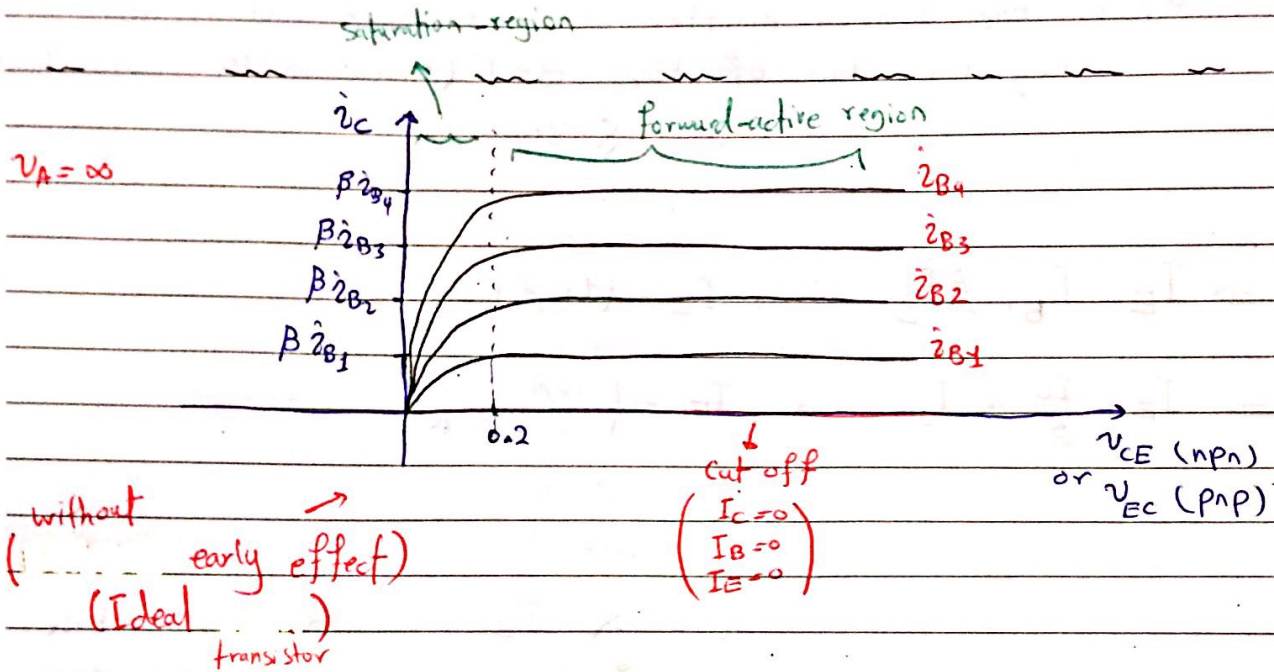 saturation-region
i_C
forward-active region
v_A = ∞
βi_B4
i_B4
βi_B3
i_B3
βi_B2
i_B2
βi_B1
i_B1
0.2
v_CE (npn)
or v_EC (pnp)
cut off
(I_C=0
I_B=0
I_E=0)
without
( early effect)
(Ideal )
transistor